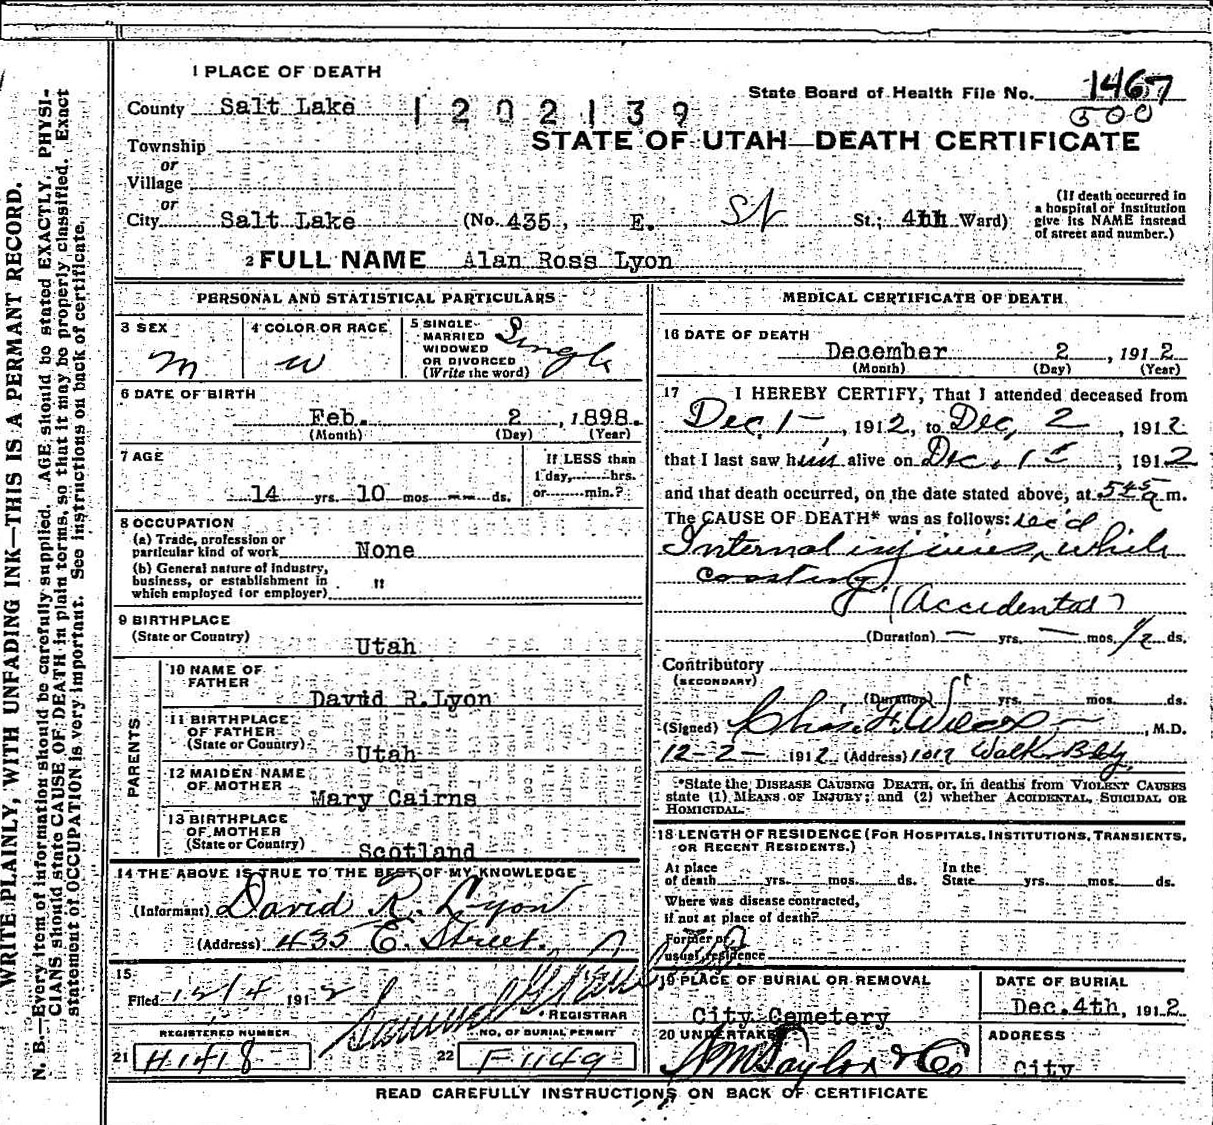 1 PLACE OF DEATH
County Salt Lake 1202139
State Board of Health File No. 1467
500
STATE OF UTAH—DEATH CERTIFICATE
Township
or
Village
or
City Salt Lake (No. 435, E. St St.; 4th Ward)
(If death occurred in a hospital or institution give its NAME instead of street and number.)
2 FULL NAME Alan Ross Lyon
PERSONAL AND STATISTICAL PARTICULARS
3 SEX
M
4 COLOR OR RACE
W
5 SINGLE
MARRIED
WIDOWED
OR DIVORCED
(Write the word)
Single
6 DATE OF BIRTH
Feb. 2, 1898.
(Month) (Day) (Year)
7 AGE
14 yrs. 10 mos. -- ds.
If LESS than
1 day, hrs.
or min.?
8 OCCUPATION
(a) Trade, profession or
particular kind of work None
(b) General nature of industry,
business, or establishment in
which employed (or employer) "
9 BIRTHPLACE
(State or Country)
Utah
PARENTS
10 NAME OF
FATHER
David R. Lyon
11 BIRTHPLACE
OF FATHER
(State or Country)
Utah
12 MAIDEN NAME
OF MOTHER
Mary Cairns
13 BIRTHPLACE
OF MOTHER
(State or Country)
Scotland
14 THE ABOVE IS TRUE TO THE BEST OF MY KNOWLEDGE
(Informant) David R. Lyon
(Address) 435 E. Street.
15
Filed 12/4 1912
Samuel
REGISTRAR
REGISTERED NUMBER
21 H1418
NO. OF BURIAL PERMIT
22 F1149
MEDICAL CERTIFICATE OF DEATH
16 DATE OF DEATH
December 2, 1912
(Month) (Day) (Year)
17 I HEREBY CERTIFY, That I attended deceased from
Dec. 1-, 1912, to Dec. 2, 1912
that I last saw him alive on Dec. 1st, 1912
and that death occurred, on the date stated above, at 545 a m.
The CAUSE OF DEATH* was as follows: rec'd
Internal injuries, while
coasting
(Accidental)
(Duration) — yrs. — mos. 1/2 ds.
Contributory
(SECONDARY)
(Duration) yrs. mos. ds.
(Signed) Chas. F. Wilcox, M.D.
12-2- 1912 (Address) 1017 Walk. Bldg.
*State the DISEASE CAUSING DEATH, or, in deaths from VIOLENT CAUSES
state (1) MEANS OF INJURY; and (2) whether ACCIDENTAL, SUICIDAL OR
HOMICIDAL.
18 LENGTH OF RESIDENCE (FOR HOSPITALS, INSTITUTIONS, TRANSIENTS,
OR RECENT RESIDENTS.)
At place
of death yrs. mos. ds.
In the
State yrs. mos. ds.
Where was disease contracted,
if not at place of death?
Former or
usual residence
19 PLACE OF BURIAL OR REMOVAL
City Cemetery
DATE OF BURIAL
Dec. 4th, 1912.
20 UNDERTAKER
S. M. Taylor & Co
ADDRESS
City
READ CAREFULLY INSTRUCTIONS ON BACK OF CERTIFICATE
WRITE PLAINLY, WITH UNFADING INK—THIS IS A PERMANT RECORD.
N. B.—Every item of information should be carefully supplied. AGE should be stated EXACTLY. PHYSI-
CIANS should state CAUSE OF DEATH in plain terms, so that it may be properly classified. Exact
statement of OCCUPATION is very important. See instructions on back of certificate.